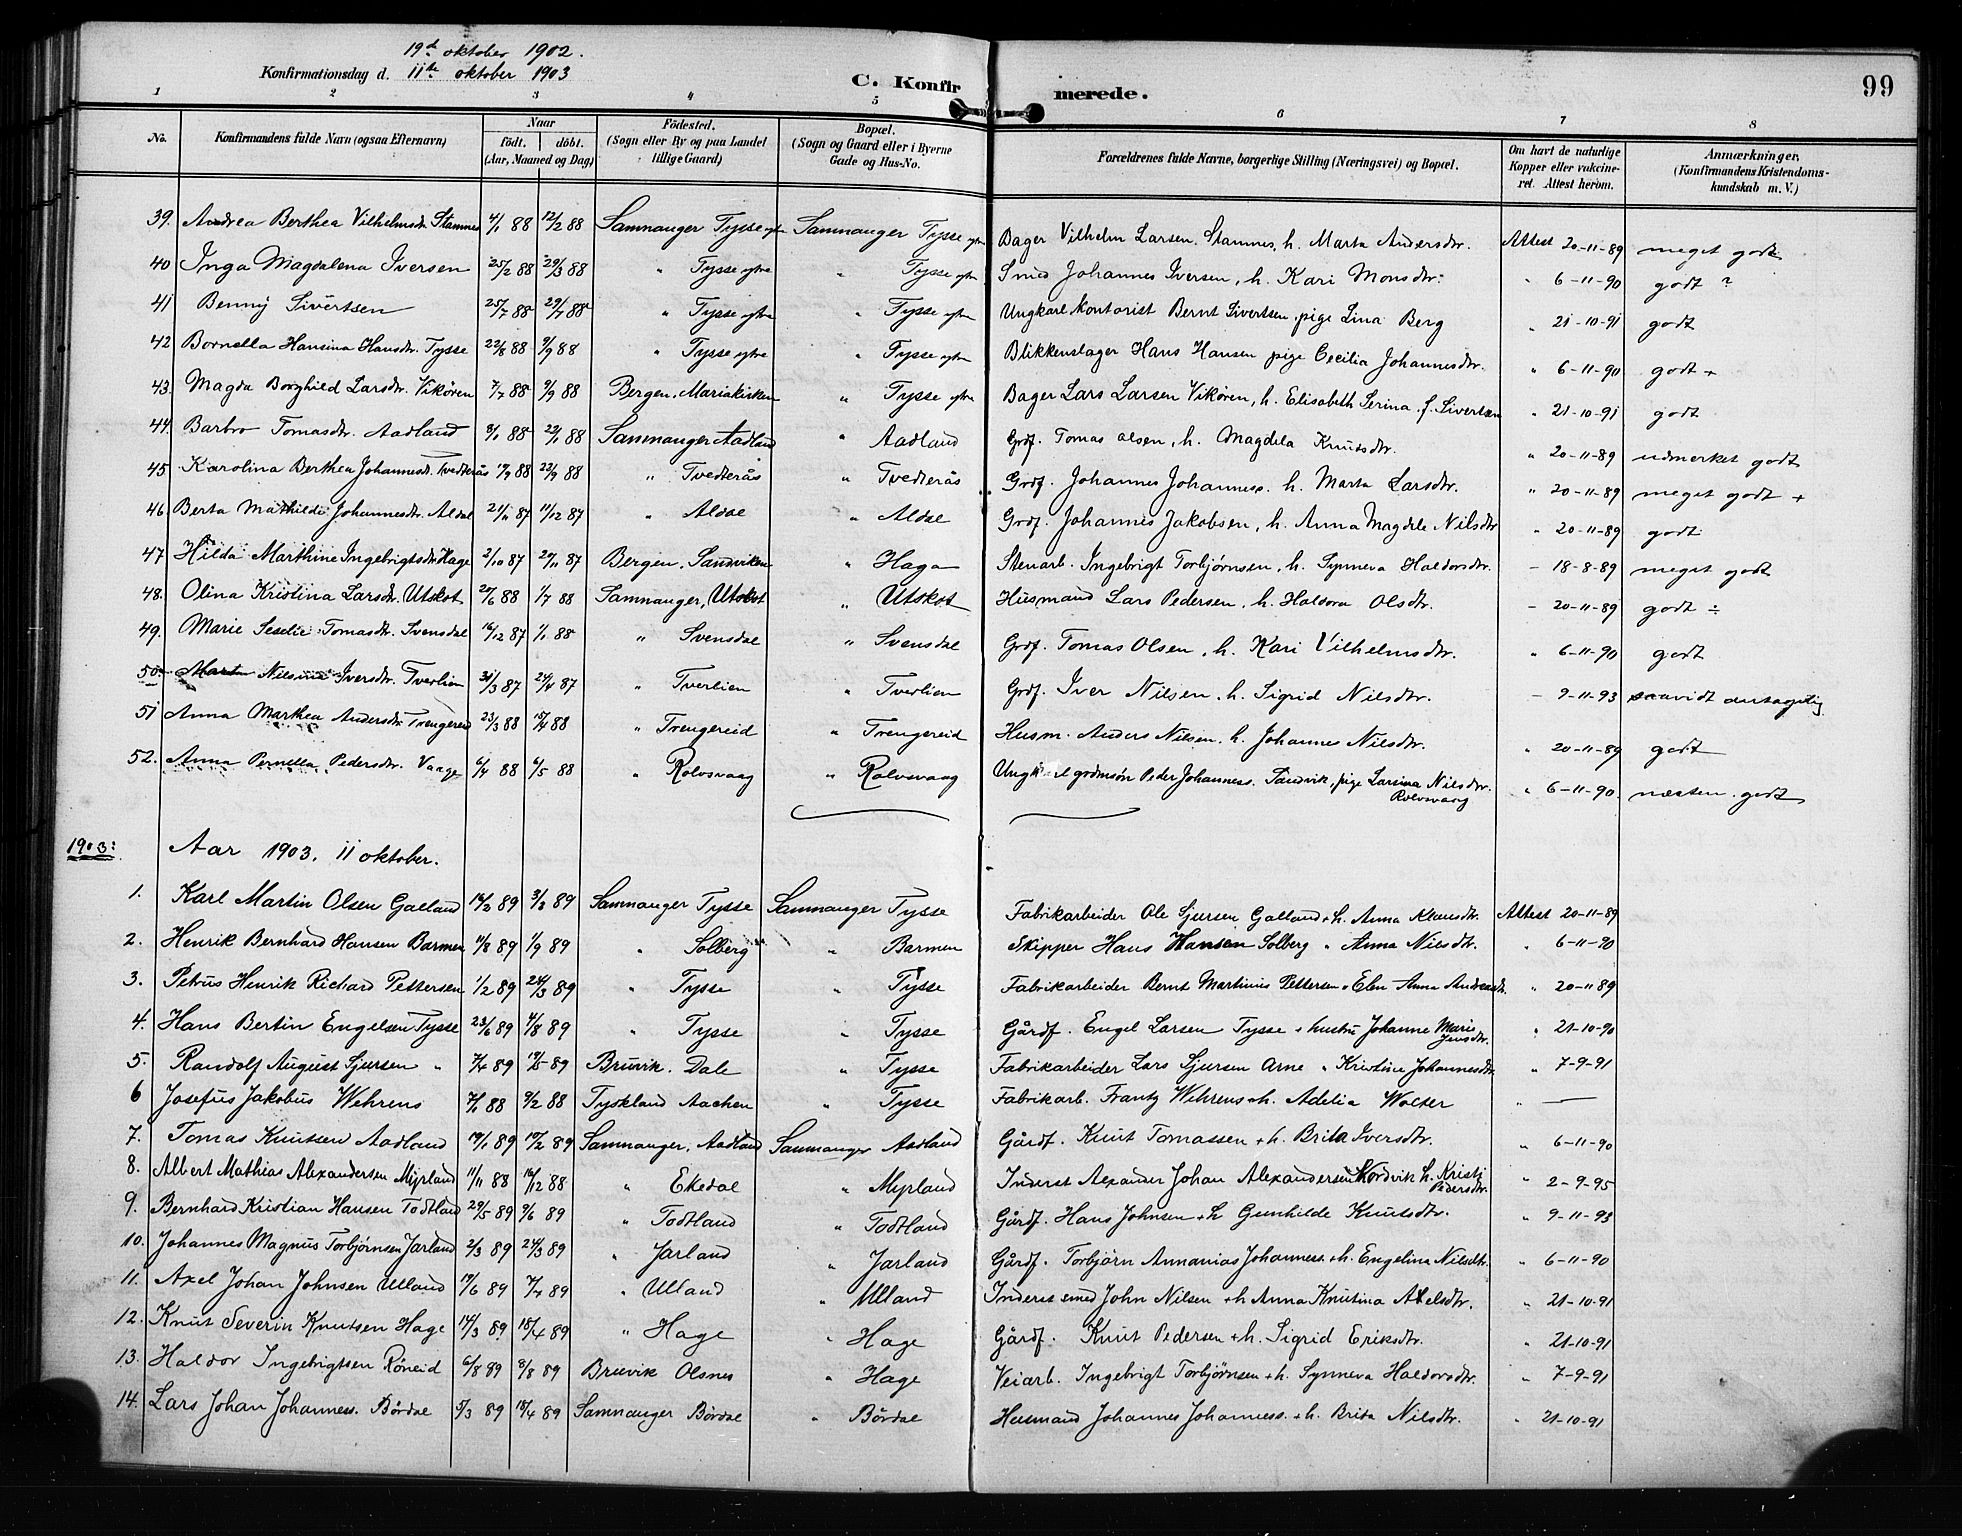 19d oktober 1902.
Konfirmationsdag d. 11te oktober 1903
C. Konfirmerede.
99
1 2 3 4 5 6 7 8
No.
Konfirmandens fulde Navn (ogsaa Efternavn)
Naar
födt. döbt.
(Aar, Maaned og Dag)
Födested.
(Sogn eller By og paa Landet tillige Gaard)
Bopæl.
(Sogn og Gaard eller i Byerne Gade og Hus-No.
Forældrenes fulde Navne, borgerlige Stilling (Næringsvei) og Bopæl.
Om havt de naturlige Kopper eller vakcineret. Attest herom.
Anmærkninger.
(Konfirmandens Kristendomskundskab m. V.)
39. Andrea Berthea Vilhelmsdr. Stamnes 4/1 88 12/2 88 Samnanger Tysse ytre Samnanger Tysse ytre Bager Vilhelm Larsen Stamnes, h. Marta Andersdtr. Attest 20-11-89 meget godt
40 Inga Magdalena Iversen 25/2 88 29/3 88 " Tysse ytre " Tysse ytre Smed Johannes Iversen, h. Kari Monsdtr. " 6-11-90 godt ?
41 Benny Sivertsen 25/7 88 29/7 88 " Tysse ytre " Tysse ytre Ungkarl kontorist Bernt Sivertsen, pige Lina Berg " 21-10-91 godt
42 Bornella Hansina Hansdtr. Tysse 22/8 88 9/9 88 " Tysse ytre " Tysse ytre Blikkenslager Hans Hansen pige Cecilia Johannesdtr. " 6-11-90 godt +
43. Magda Borghild Larsdtr. Vikören 7/7 88 9/9 88 Bergen, Mariakirken " Tysse ytre Bager Lars Larsen Vikören, h. Elisabeth Serina f. Sivertsen " 21-10-91 godt
44. Barbro Tomasdtr. Aadland 3/1 88 22/1 88 Samnanger Aadland " Aadland Grdf. Tomas Olsen, h. Magdela Knutsdtr. " 20-11-89 udmerket godt
45 Karolina Berthea Johannesdt. Tvedterås 17/9 88 23/9 88 " Tvedterås " Tvedterås Grdf. Johannes Johanness. h. Marta Larsdtr. " 20-11-89 meget godt +
46 Berta Mathilde Johannesdtr. Aldal 21/11 87 11/12 87 " Aldal " Aldal Grdf. Johannes Jakobsen, h. Anna Magdele Nilsdtr " 20-11-89 godt
47 Hilda Marthine Ingebrigtsdtr. Hage 2/10 87 20/11 87 Bergen, Sandviken " Haga Stenarb. Ingebrigt Torbjørnsen, h. Synneva Haldorsdtr. - 18-8-89 meget godt
48. Olina Kristina Larsdtr. Utskot 20/6 88 1/7 88 Samnanger, Utskot " Utskot Husmand Lars Pedersen, h. Haldora Olsdtr. - 20-11-89 godt ÷
49. Marie Seselie Tomasdtr. Svensdal 16/12 87 1/1 88 " Svensdal " Svensdal Grdf. Tomas Olsen, h. Kari Vilhelmsdtr. " 6-11-90 godt
50. Nilsine Iversdtr. Tverlien 31/3 87 24/4 87 " Tverlien " Tverlien Grdf. Iver Nilsen, h. Sigrid Nilsdtr. - 9-11-93 saavidt antagelig
51 Anna Marthea Andersdtr. Trengereid 23/3 88 15/4 88 " Trengereid " Trengereid Husm. Anders Nilsen, h. Johannes Nilsdtr. " 20-11-89 godt
52. Anna Pernella Pedersdtr. Vaage 6/4 88 6/5 88 " Rolvsvaag " Rolvsvaag Peder Johanness. Sandvik, pige Larsina Nilsdtr. Rolvsvaag " 6-11-90. næsten godt
1903: Aar 1903. 11 oktober.
1. Karl Martin Olsen Galland 16/2 89 3/3 89 Samnanger Tysse Samnanger Tysse Fabrikarbeider Ole Sjursen Galland + h. Anna Klausdtr. Attest 20-11-89
2. Henrik Bernhard Hansen Barmen 11/8 89 1/9 89 " Solberg " Barmen Skipper Hans Hansen Solberg " Anna Nilsdtr. " 6-11-90
3. Petrus Henrik Richard Pettersen 1/2 89 24/3 89 " Tysse " Tysse Fabrikarbeider Bernt Martinius Pettersen " Elen Anna Andreasdtr. " 20-11 89
4. Hans Bertin Engelsen Tysse 23/6 89 4/8 89 " Tysse " Tysse Gårdf. Engel Larsen Tysse + hustru Johanne Marie Jensdtr. " 21-10-90
5. Randolf August Sjursen " 7/4 89 19/5 89 Bruvik. Dale " Tysse Fabrikarbeider Lars Sjursen Arne " Kristine Johannesdtr. " 7-9-91
6 Josefus Jakobus Wehrens 7/1 88 9/2 88 Tyskland Aachen " Tysse Fabrikarb. Frantz Wehrens + h. Adelia Wolter " —
7. Tomas Knutsen Aadland 19/1 89 17/2 89 Samnanger, Aadland Samnanger Aadland Gårdf. Knut Tomassen + h. Brita Iversdtr. " 6-11-90
8. Albert Mathias Alexandersen Myrland 11/11 88 16/12 88 " Ekedal " Myrland Inderst Alexander Johan Alexandersen Nordvik h. Kristi Pedersdtr. " 2-9-95
9. Bernhard Kristian Hansen Todtland 29/5 89 9/6 89 " Todtland " Todtland Gårdf. Hans Johnsen + h Gunhilde Knutsdtr. " 9-11-93
10. Johannes Magnus Torbjørnsen Jarland 2/3 89 24/3 89 " Jarland " Jarland Gårdf. Torbjörn Annanias Johanness. + h. Engelina Nilsdtr. " 6-11-90
11. Axel Johan Johnsen Ulland 17/6 89 7/7 89 " Ulland " Ulland Inderst smed John Nilsen + h Anna Knutina Axelsdtr. " 21-10-91
12. Knut Severin Knutsen Hage 14/3 89 18/4 89 " Hage " Hage Gårdf. Knut Pedersen + h. Sigrid Eriksdtr. " 21-10-91
13. Haldor Ingebrigtsen Röneid 6/8 89 8/8 89 Bruvik Olsnes " Hage Veiarb. Ingebrigt Torbjørnsen + h. Synneva Haldorsdtr. " 7-9-91
14. Lars Johan Johanness. Bördal 5/3 89 18/4 89 Samnanger Bördal " Bördal Husmand Johannes Johanness. + h. Brita Nilsdtr. " 21-10-91